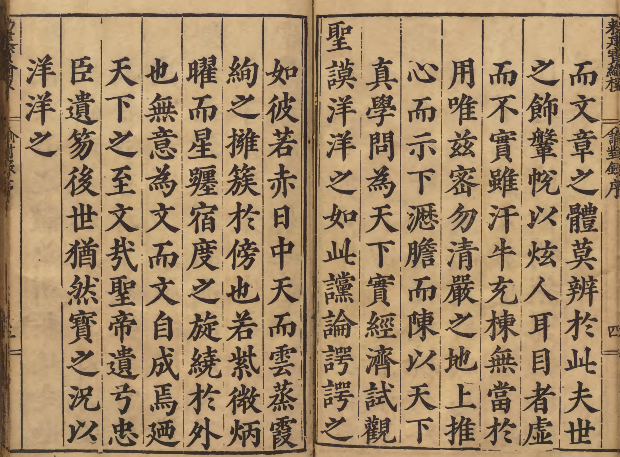 諭對錄序
四
而文章之體莫辨於此夫世
之飾鞶帨以炫人耳目者虛
而不實雖汗牛充棟無當於
用唯兹宻勿清嚴之地上推
心而示下瀝膽而陳以天下
真學問為天下實經濟試觀
聖謨洋洋之如此讜論諤諤之
如彼若赤日中天而雲蒸霞
絢之擁簇於傍也若紫微炳
曜而星躔宿度之旋繞於外
也無意為文而文自成焉廼
天下之至文㢤聖帝遺弓忠
臣遺笏後世猶然寶之況以
洋洋之